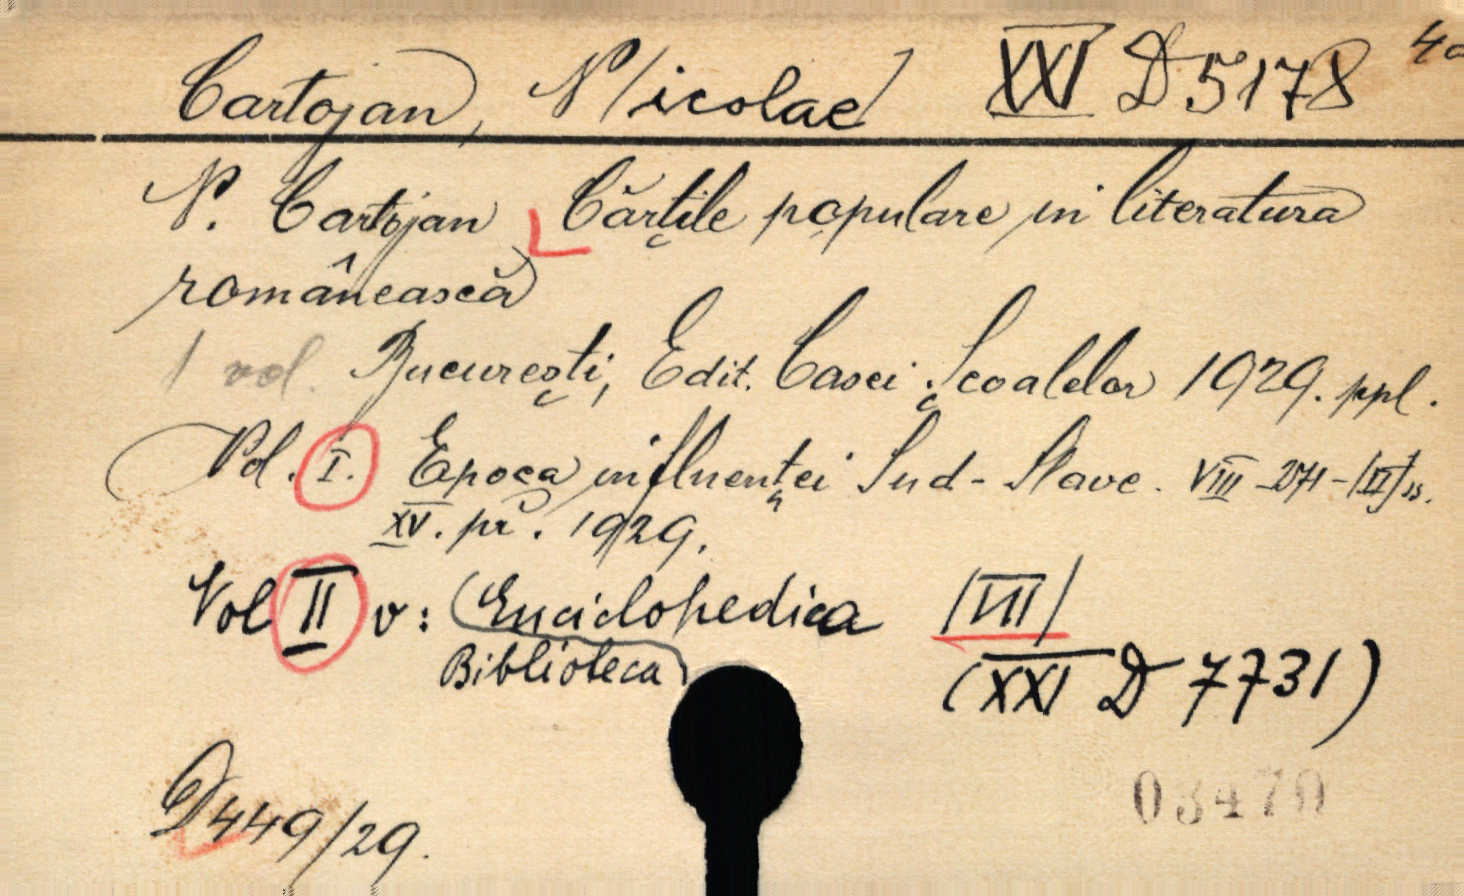 Cartojan, N/icolae/ XXI D 5178 4o
N. Cartojan Cărţile populare in literatura
românească
1 vol. Bucureşti, Edit. Casei Şcoalelor 1929. ppl.
Vol. I. Epoca influenţei Sud-Slave. VIII -271-[II]
XV. pr. 1929.
Vol II v: Enciclopedica /VII/
Biblioteca (XXI D 7731)
03470
D449/29.